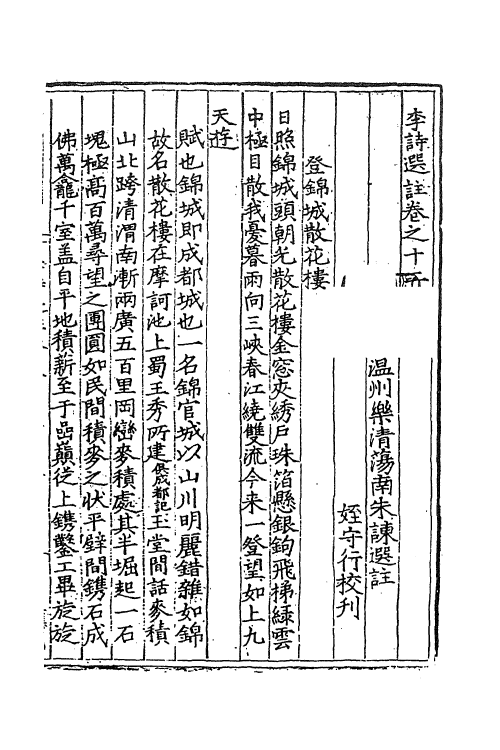 李詩選註卷之十一
温州樂清蕩南朱諫選註
姪守行校刊
登錦城散花樓
日照錦城頭朝光散花樓金窓夾綉戶珠箔懸銀鉤飛梯綠雲
中極目散我憂暮雨向三峽春江繞雙流今来一登望如上九
天遊
賦也錦城即成都城也一名錦官城以山川明麗錯雜如錦
故名散花樓在摩訶池上蜀王秀所建見成都記玉堂閒話麥積
山北跨清渭南漸兩廣五百里岡巒麥積處其半堀起一石
塊極髙百萬尋望之團圓如民間積麥之狀平壁間鐫石成
佛萬龕千室盖自平地積薪至于嵒巔從上鐫鑿工畢旋旋